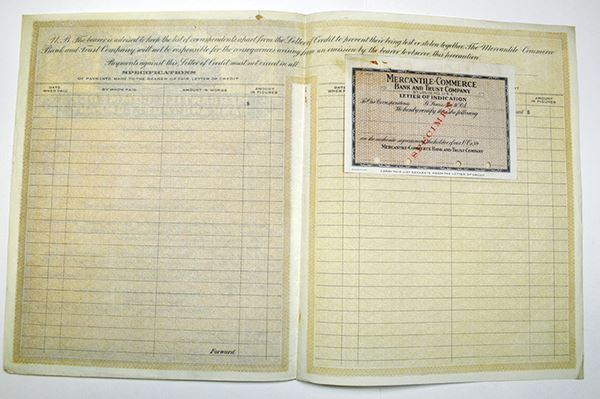 N.B. The bearer is advised to keep the list of correspondents apart from the Letter of Credit to prevent their being lost or stolen together. The Mercantile-Commerce
Bank and Trust Company will not be responsible for the consequences arising from an omission by the bearer to observe this precaution.
Payments against this Letter of Credit must not exceed in all
SPECIFICATIONS
OF PAYMENTS MADE TO THE BEARER OF THIS LETTER OF CREDIT
DATE WHEN PAID
BY WHOM PAID
AMOUNT IN WORDS
AMOUNT IN FIGURES
$
Forward
DATE WHEN PAID
AMOUNT IN FIGURES
$
MERCANTILE-COMMERCE
BANK AND TRUST COMPANY
ST. LOUIS, MO., U.S.A.
LETTER OF INDICATION
To Our Correspondents
St. Louis,
We hereby certify
the following
SPECIMEN
is the authentic signature of the holder of our L/C No.
MERCANTILE-COMMERCE BANK AND TRUST COMPANY
CARRY THIS LIST SEPARATE FROM THE LETTER OF CREDIT